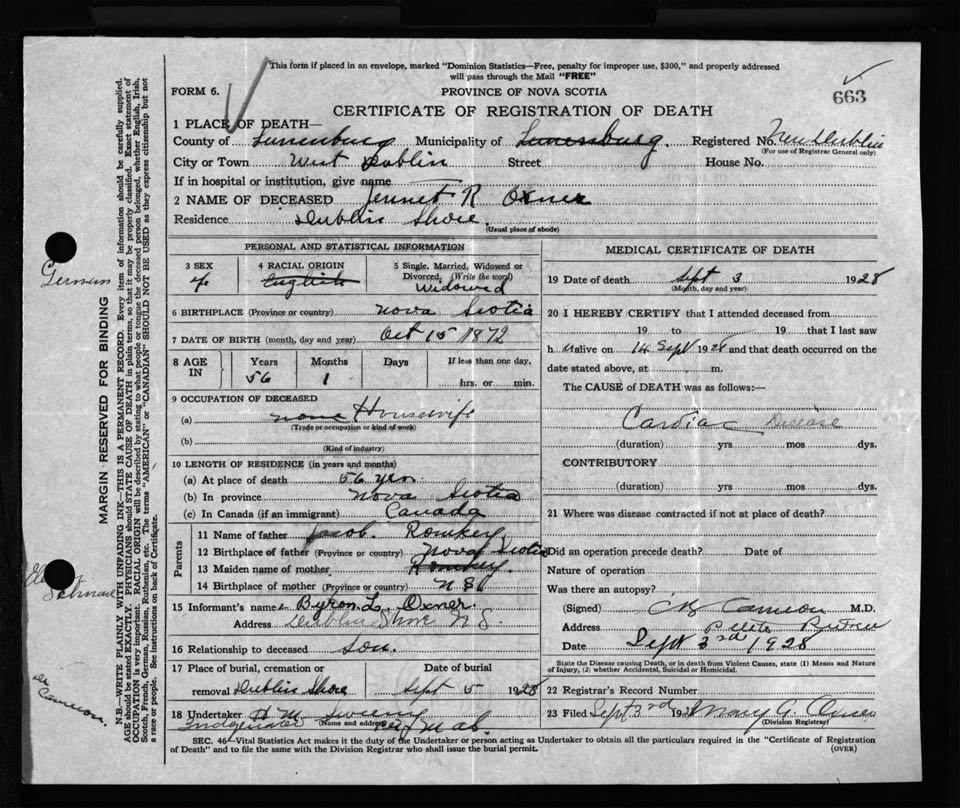 This form if placed in an envelope, marked "Dominion Statistics—Free, penalty for improper use, $300," and properly addressed
will pass through the Mail "FREE"
FORM 6.
PROVINCE OF NOVA SCOTIA
663
CERTIFICATE OF REGISTRATION OF DEATH
1 PLACE OF DEATH—
County of Lunenburg Municipality of Lunenburg. Registered No. New Dublin
(For use of Registrar General only)
City or Town West Dublin Street House No.
If in hospital or institution, give name —
2 NAME OF DECEASED Jennet R Oxner
Residence Dublin Shore.
(Usual place of abode)
PERSONAL AND STATISTICAL INFORMATION
3 SEX
4 RACIAL ORIGIN
English
German
5 Single, Married, Widowed or
Divorced, (Write the word)
Widowed
6 BIRTHPLACE (Province or country) Nova Scotia
7 DATE OF BIRTH (month, day and year) Oct 15 1872
8 AGE IN
Years
56
Months
1
Days
If less than one day,
hrs. or min.
9 OCCUPATION OF DECEASED
(a) none Housewife
(Trade or occupation or kind of work)
(b)
(Kind of industry)
10 LENGTH OF RESIDENCE (in years and months)
(a) At place of death 56 yrs.
(b) In province Nova Scotia
(c) In Canada (if an immigrant) Canada
Parents
11 Name of father Jacob. Romkey
12 Birthplace of father (Province or country) Nova Scotia
13 Maiden name of mother Romkey.
14 Birthplace of mother (Province or country) N S
15 Informant's name Byron L. Oxner.
Address Dublin Shore N S.
16 Relationship to deceased son.
17 Place of burial, cremation or
removal Dublin Shore
Date of burial
Sept 5 1928
18 Undertaker
(Name and address)
MEDICAL CERTIFICATE OF DEATH
19 Date of death Sept 3 1928
(Month, day and year)
20 I HEREBY CERTIFY that I attended deceased from
19 to 19 that I last saw
h alive on 14 Sept 1928 and that death occurred on the
date stated above, at m.
The CAUSE of DEATH was as follows:—
Cardiac Disease
(duration) yrs mos dys.
CONTRIBUTORY
(duration) yrs mos dys.
21 Where was disease contracted if not at place of death?
Did an operation precede death? Date of
Nature of operation
Was there an autopsy?
(Signed) Cameron M.D.
Address
Date Sept 3rd 1928
State the Disease causing Death, or in death from Violent Causes, state (1) Means and Nature
of Injury, (2) whether Accidental, Suicidal or Homicidal.
22 Registrar's Record Number
23 Filed Sept 3rd 1928 Mary G. Oxner
(Division Registrar)
SEC. 46—Vital Statistics Act makes it the duty of the Undertaker or person acting as Undertaker to obtain all the particulars required in the "Certificate of Registration
of Death" and to file the same with the Division Registrar who shall issue the burial permit.
(OVER)
MARGIN RESERVED FOR BINDING
N.B.—WRITE PLAINLY WITH UNFADING INK—THIS IS A PERMANENT RECORD. Every item of information should be carefully supplied.
AGE should be stated EXACTLY. PHYSICIANS should STATE CAUSE OF DEATH in plain terms, so that it may be properly classified. Exact statement of
OCCUPATION is very important. RACIAL ORIGIN will be described by stating to what people or tongue the deceased person belonged, whether English, Irish,
Scotch, French, German, Russian, Ruthenian, etc. The terms "AMERICAN" or "CANADIAN" SHOULD NOT BE USED as they express citizenship but not
a race or people. See instructions on back of Certificate.
Cameron.